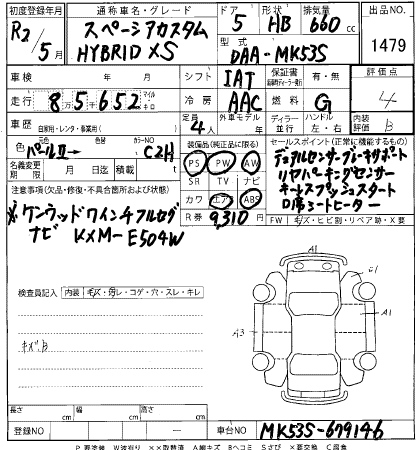 初度登録年月 通称車名・グレード ドア 形状 排気量 出品NO.
R2/5月 スペーシアカスタム HYBRID XS 5 HB 660cc 1479
型式 DAA-MK53S
車検 年 月 シフト IAT 保証書 有・無 評価点
走行 85652 マイル キロ 冷房 AAC 燃料 G 4
車歴 自家用・レンタ・事業用( ) 定員 4人 外車 年モデル ディーラー 並行 ハンドル 左・右 内装 B
色 パールII→ カラーNO C2H 装備品(純正品に限る) セールスポイント(正常に機能するもの)
名義変更期限 月 日迄 積載 t PS PW AW
SR TV ナビ
カワ エアB ABS
R券 9,310円
デュアルセンサーブレーキサポート
リヤパーキングセンサー
キーレスプッシュスタート
D席シートヒーター
注意事項(欠品・修復・不具合箇所および状態)
※ケンウッドワイン4フルセグ
ナビ KXM-E504W
FW キズ・ヒビ割・リペア跡・X要
検査員記入 内装 キズ・汚レ・コゲ・穴・スレ・キレ
キズ、B
A1
A1
A3
長さ cm 幅 cm 高さ cm
登録NO ー 車台NO MK53S-679146
P 要塗装 W波有り ××取替済 A線キズ Bヘコミ Sさび ×要交換 C腐食